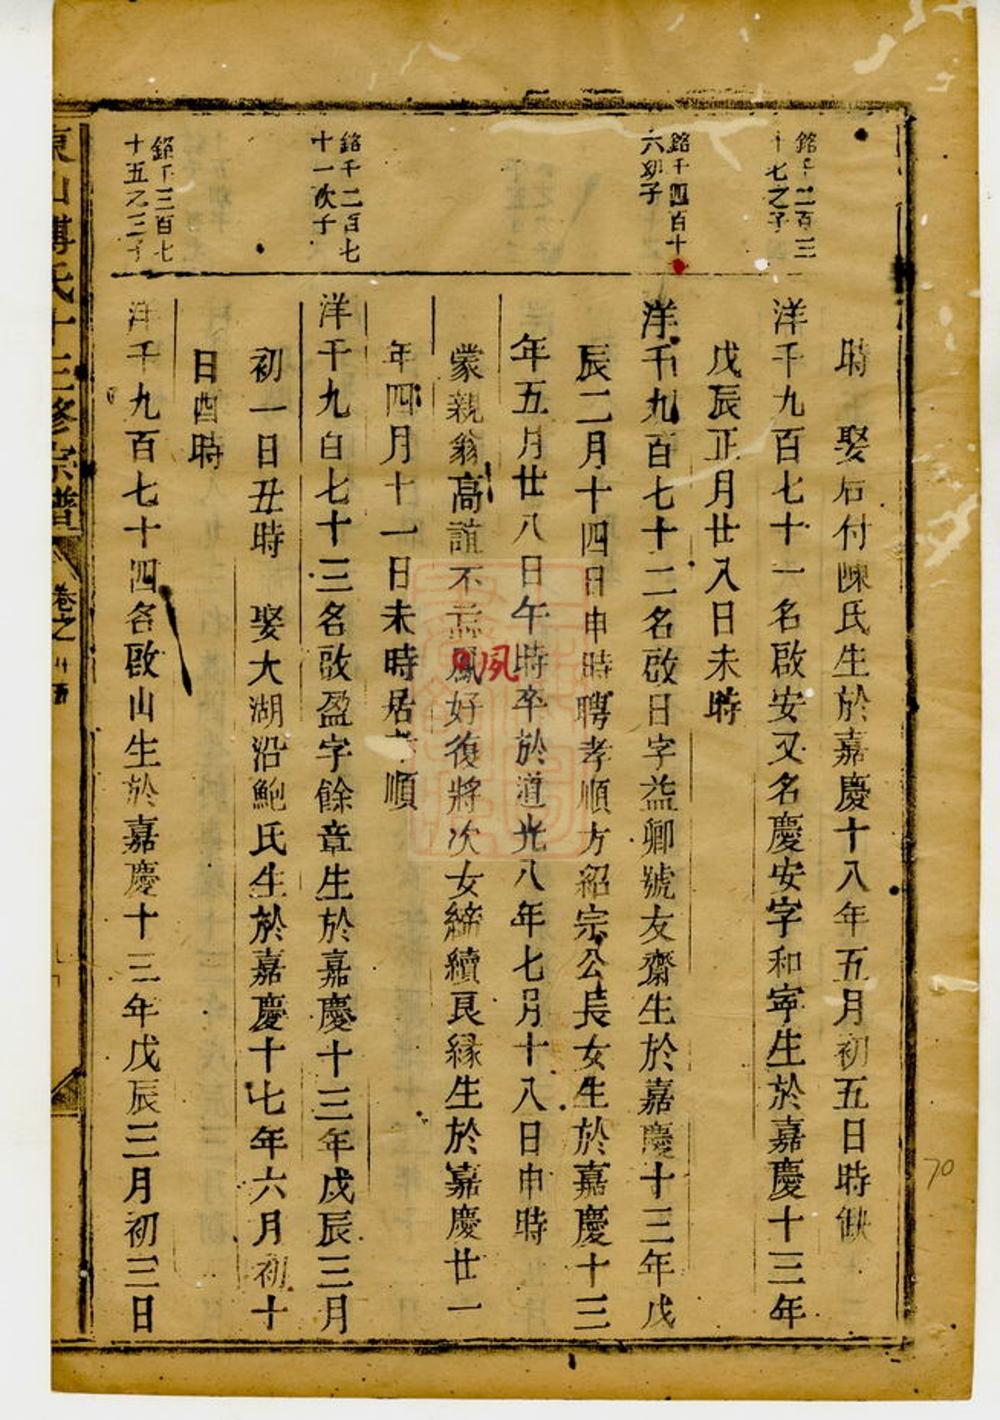 時 娶后付陳氏生於嘉慶十八年五月初五日時缺
銘千二百三
十七之子
洋千九百七十一名啟安又名慶安字和寧生於嘉慶十三年
戊辰正月廿八日未時
銘千四百十
六卿子
洋千九百七十二名啟日字益卿號友齋生於嘉慶十三年戊
辰二月十四日申時聘孝順方紹宗公長女生於嘉慶十三
年五月廿八日午時卒於道光八年七月十八日申時
蒙親翁高誼不忘風夙好復將次女締續良緣生於嘉慶廿一
年四月十一日未時居孝順
銘千二百七
十一次子
洋千九百七十三名啟盈字餘章生於嘉慶十三年戊辰三月
初一日丑時 娶大湖沿鮑氏生於嘉慶十七年六月初十
日酉時
銘千三百七
十五之三子
洋千九百七十四名啟山生於嘉慶十三年戊辰三月初三日
東山傅氏十三修宗譜 卷之廿
70